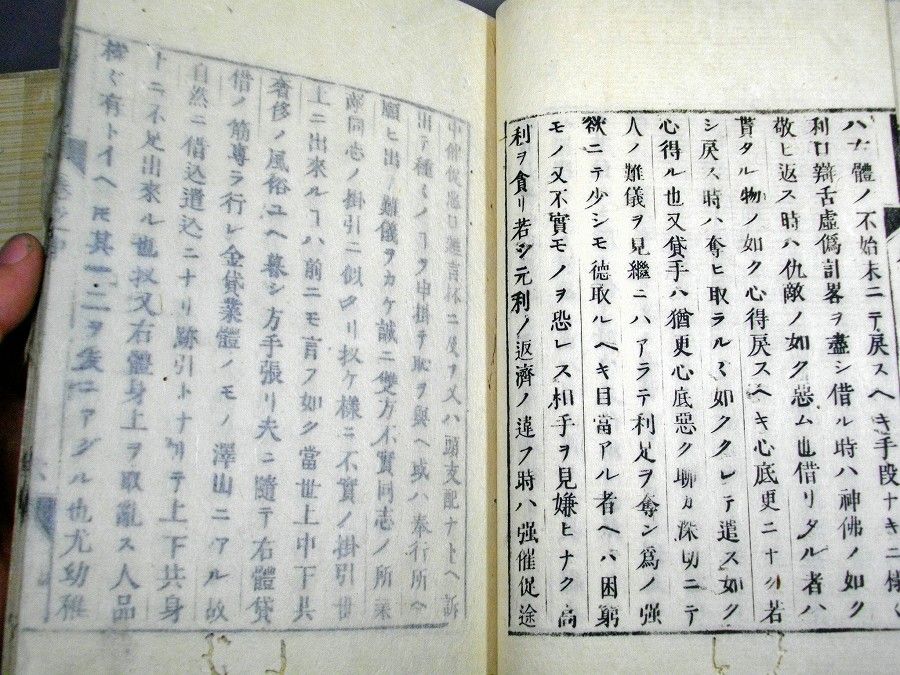 ハ女體ノ不始末ニテ戻スヘキ手段ナキニ様々
利口辯舌虚偽計畧ヲ盡シ借ル時ハ神佛ノ如ク
敬ヒ返ス時ハ仇敵ノ如ク惡ム也借リタル者ハ
貰タル物ノ如ク心得戻スヘキ心底更ニナク若
シ戻ス時ハ奪ヒ取ラルヽ如ククレテ遣ス如ク
心得ル也又貸手ハ猶更心底惡ク聊カ深切ニテ
人ノ難儀ヲ見繼ニハアラテ利足ヲ奪ン爲ノ强
欲ニテ少シモ德取ルヘキ目當アル者ヘハ困窮
モノ又不實モノヲ恐レス相手ヲ見嫌ヒナク高
利ヲ貪リ若シ元利ノ返濟ノ違フ時ハ强催促途
ニ及ヲ又ハ頭支配ナトヘ訴
出テ種々ノヿヲ申掛テ恥ヲ與ヘ或ハ奉行所ヘ
願ヒ出難儀ヲカケ誠ニ雙方不實同志ノ所業
敵同志ノ掛引ニ似タリ扨ケ様ニ不實ノ掛引世
上ニ出來ルヿハ前ニモ言フ如ク當世上中下共
奢侈ノ風俗ユヘ暮シ方手張リ夫ニ隨テ右體貸
借ノ筋專ラ行レ金貸業體ノモノ澤山ニアル故
自然ニ借込遣込ニナリ跡引トナリテ上下共身
上ニ不足出來ル也扨又右體身上ヲ取亂ス人品
樣々有トイヘ𪜈其一二ヲ爰ニアグル也尤幼稚